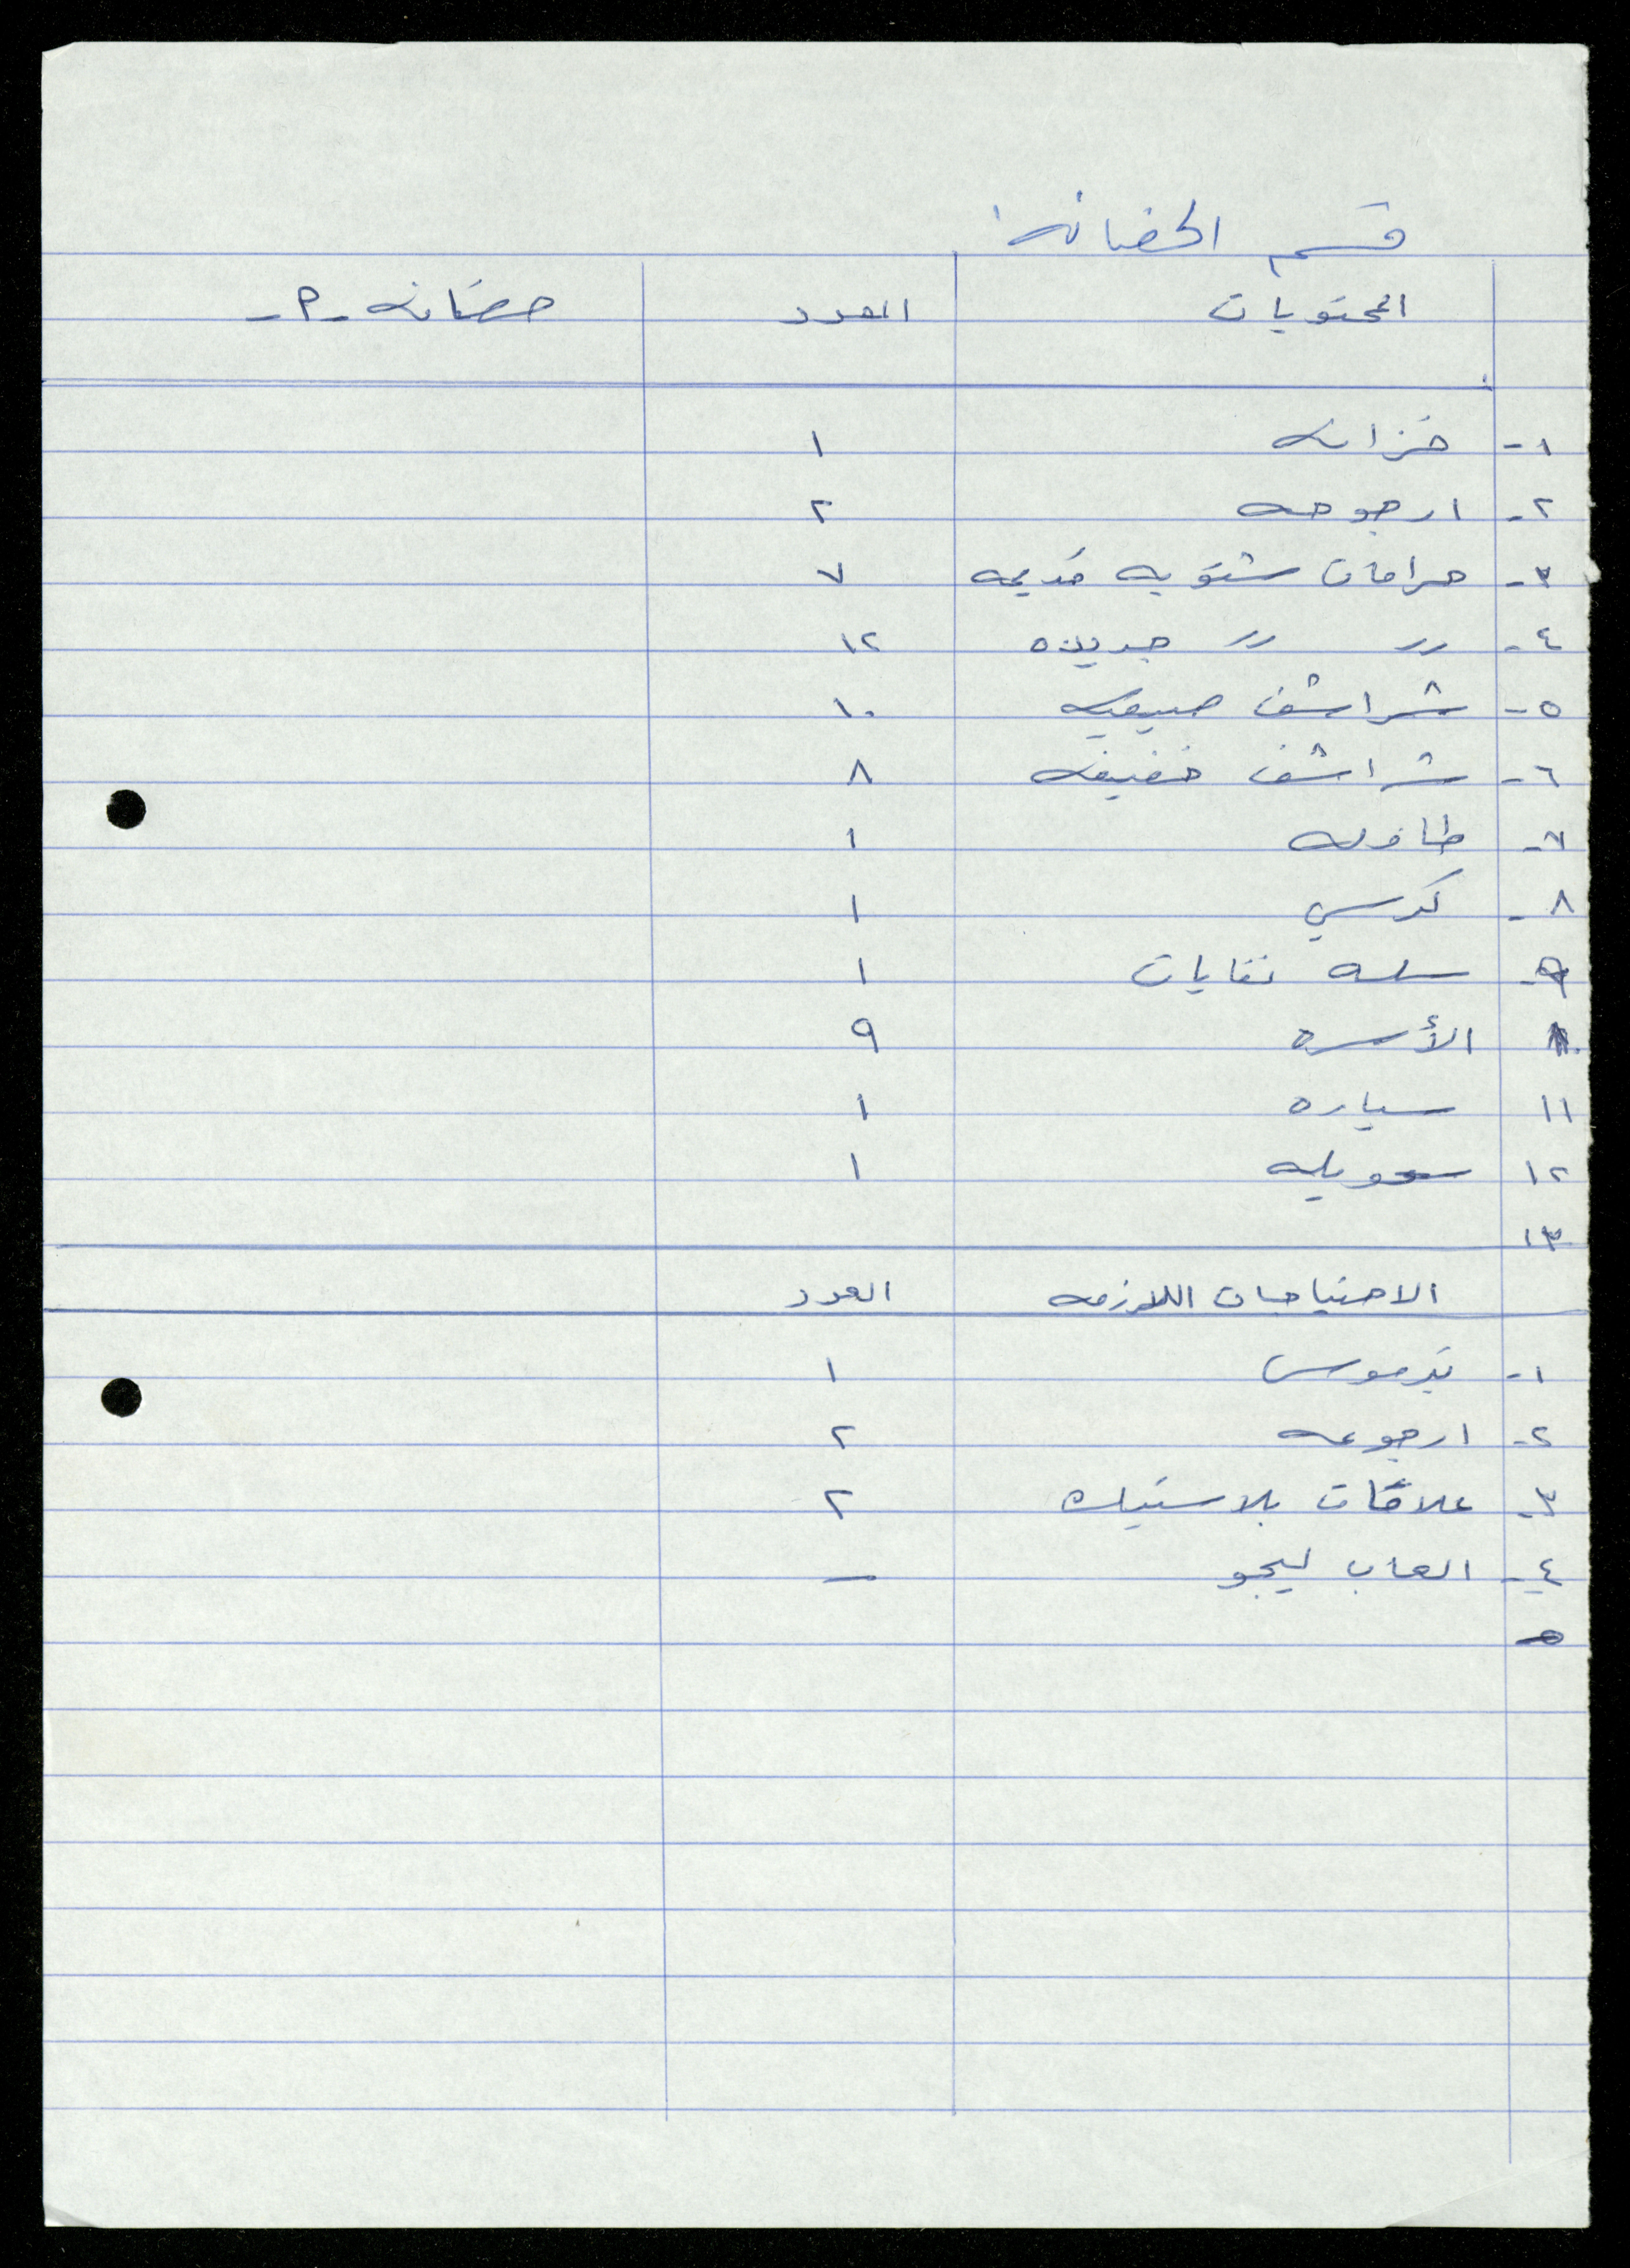 قسم الحضانه
المحتويات العدد حضانه -٢-
١- خزانه ١
٢- ارجوحه ٢
٣- حرامات شتويه قديمه ٧
٤- 〃 〃 جديده ١٢
٥- شراشف صيفيه ١٠
٦- شراشف خفيفه ٨
٧- طاوله ١
٨- كرسي ١
٩- سله نفايات ١
١٠ الأسره ٩
١١ سياره ١
١٢ ١
١٣
الاحتياجات اللازمه العدد
١- ترموس ١
٢- ارجوحه ٢
٣- علاقات بلاستيك ٢
٤- العاب ليجو —
٥